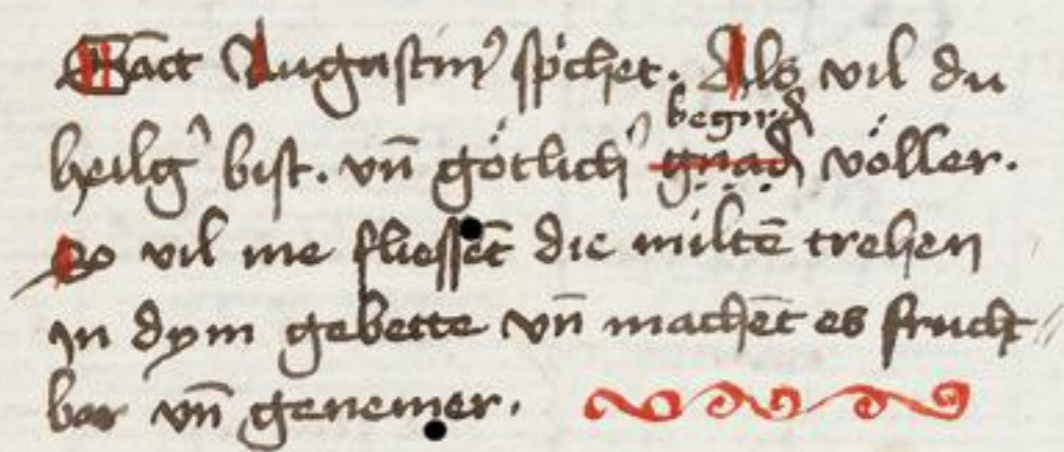 Sāct Augustinꝰ sp̈chet. Als vil du
begird̾
heilg̾ bist. vn̄ götlich̾ gnad̾ völler.
So vil me fliessēt die miltē trehen
In dym gebette vn̄ machēt es frucht//
bar vn̄ genemer.